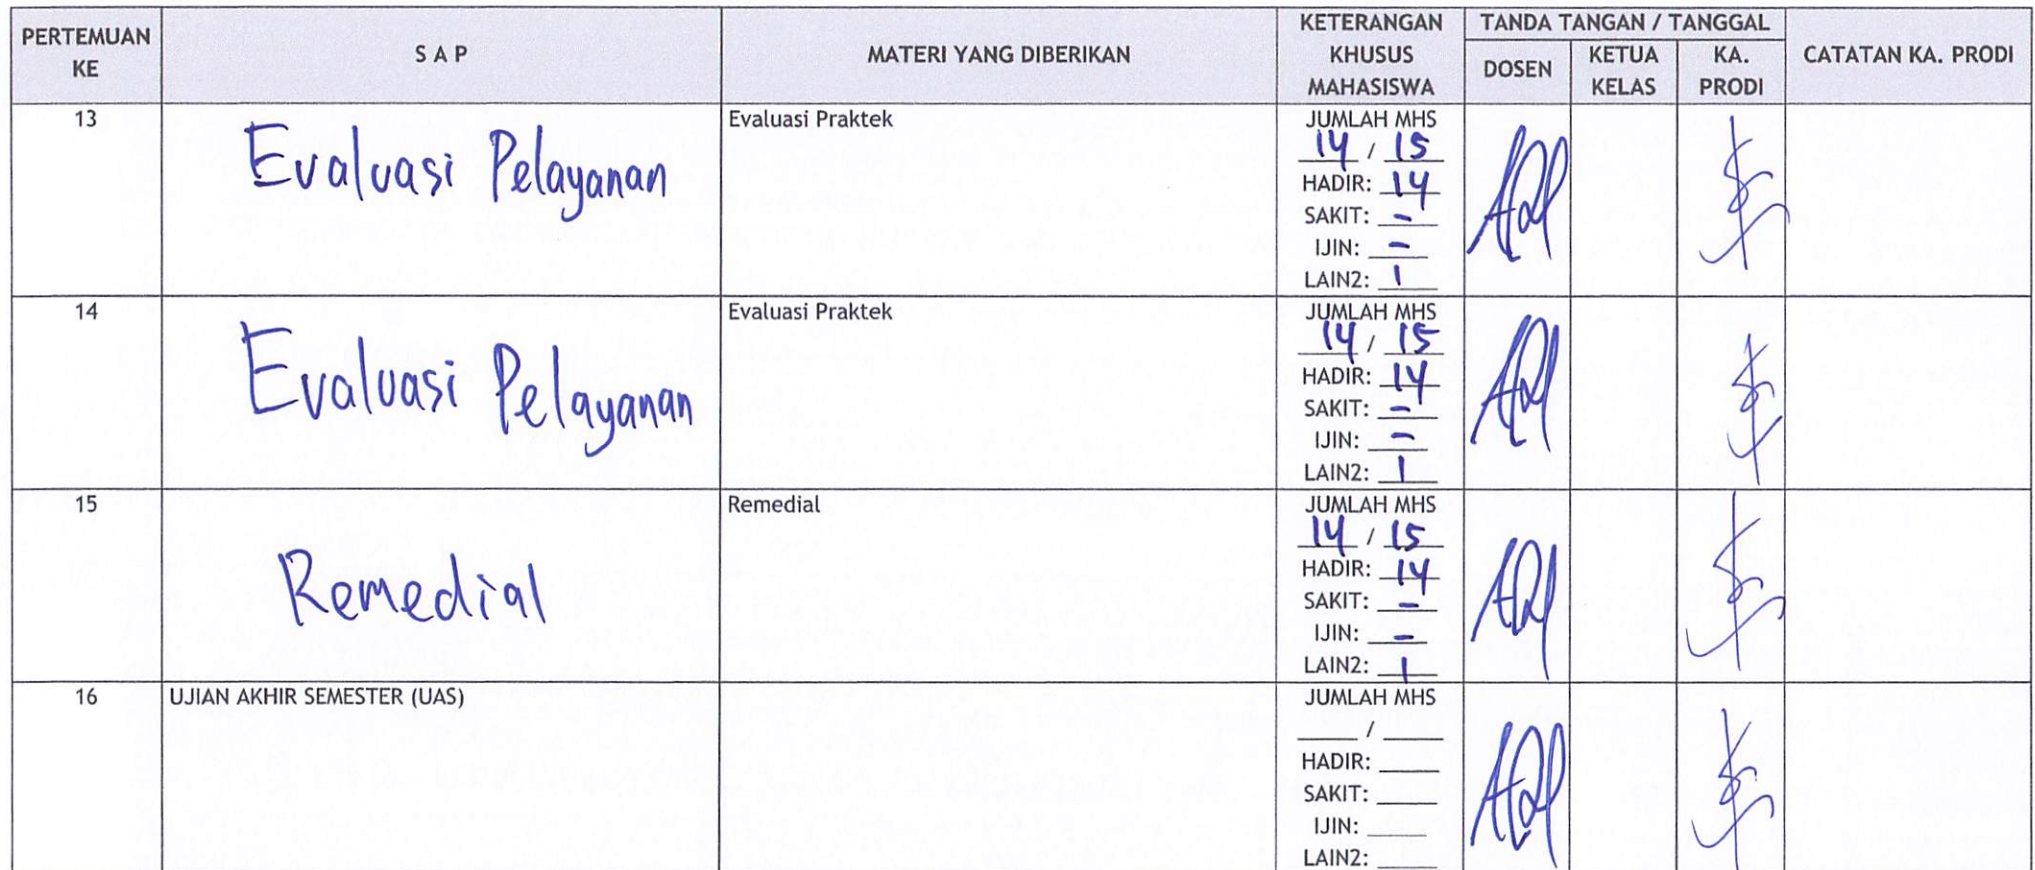 PERTEMUAN KE
S A P
MATERI YANG DIBERIKAN
KETERANGAN KHUSUS MAHASISWA
TANDA TANGAN / TANGGAL
DOSEN
KETUA KELAS
KA. PRODI
CATATAN KA. PRODI
13
Evaluasi Pelayanan
Evaluasi Praktek
JUMLAH MHS
14 / 15
HADIR: 14
SAKIT: -
IJIN: -
LAIN2: 1
14
Evaluasi Pelayanan
Evaluasi Praktek
JUMLAH MHS
14 / 15
HADIR: 14
SAKIT: -
IJIN: -
LAIN2: 1
15
Remedial
Remedial
JUMLAH MHS
14 / 15
HADIR: 14
SAKIT: -
IJIN: -
LAIN2: 1
16
UJIAN AKHIR SEMESTER (UAS)
JUMLAH MHS
____ / ____
HADIR: ____
SAKIT: ____
IJIN: ____
LAIN2: ____